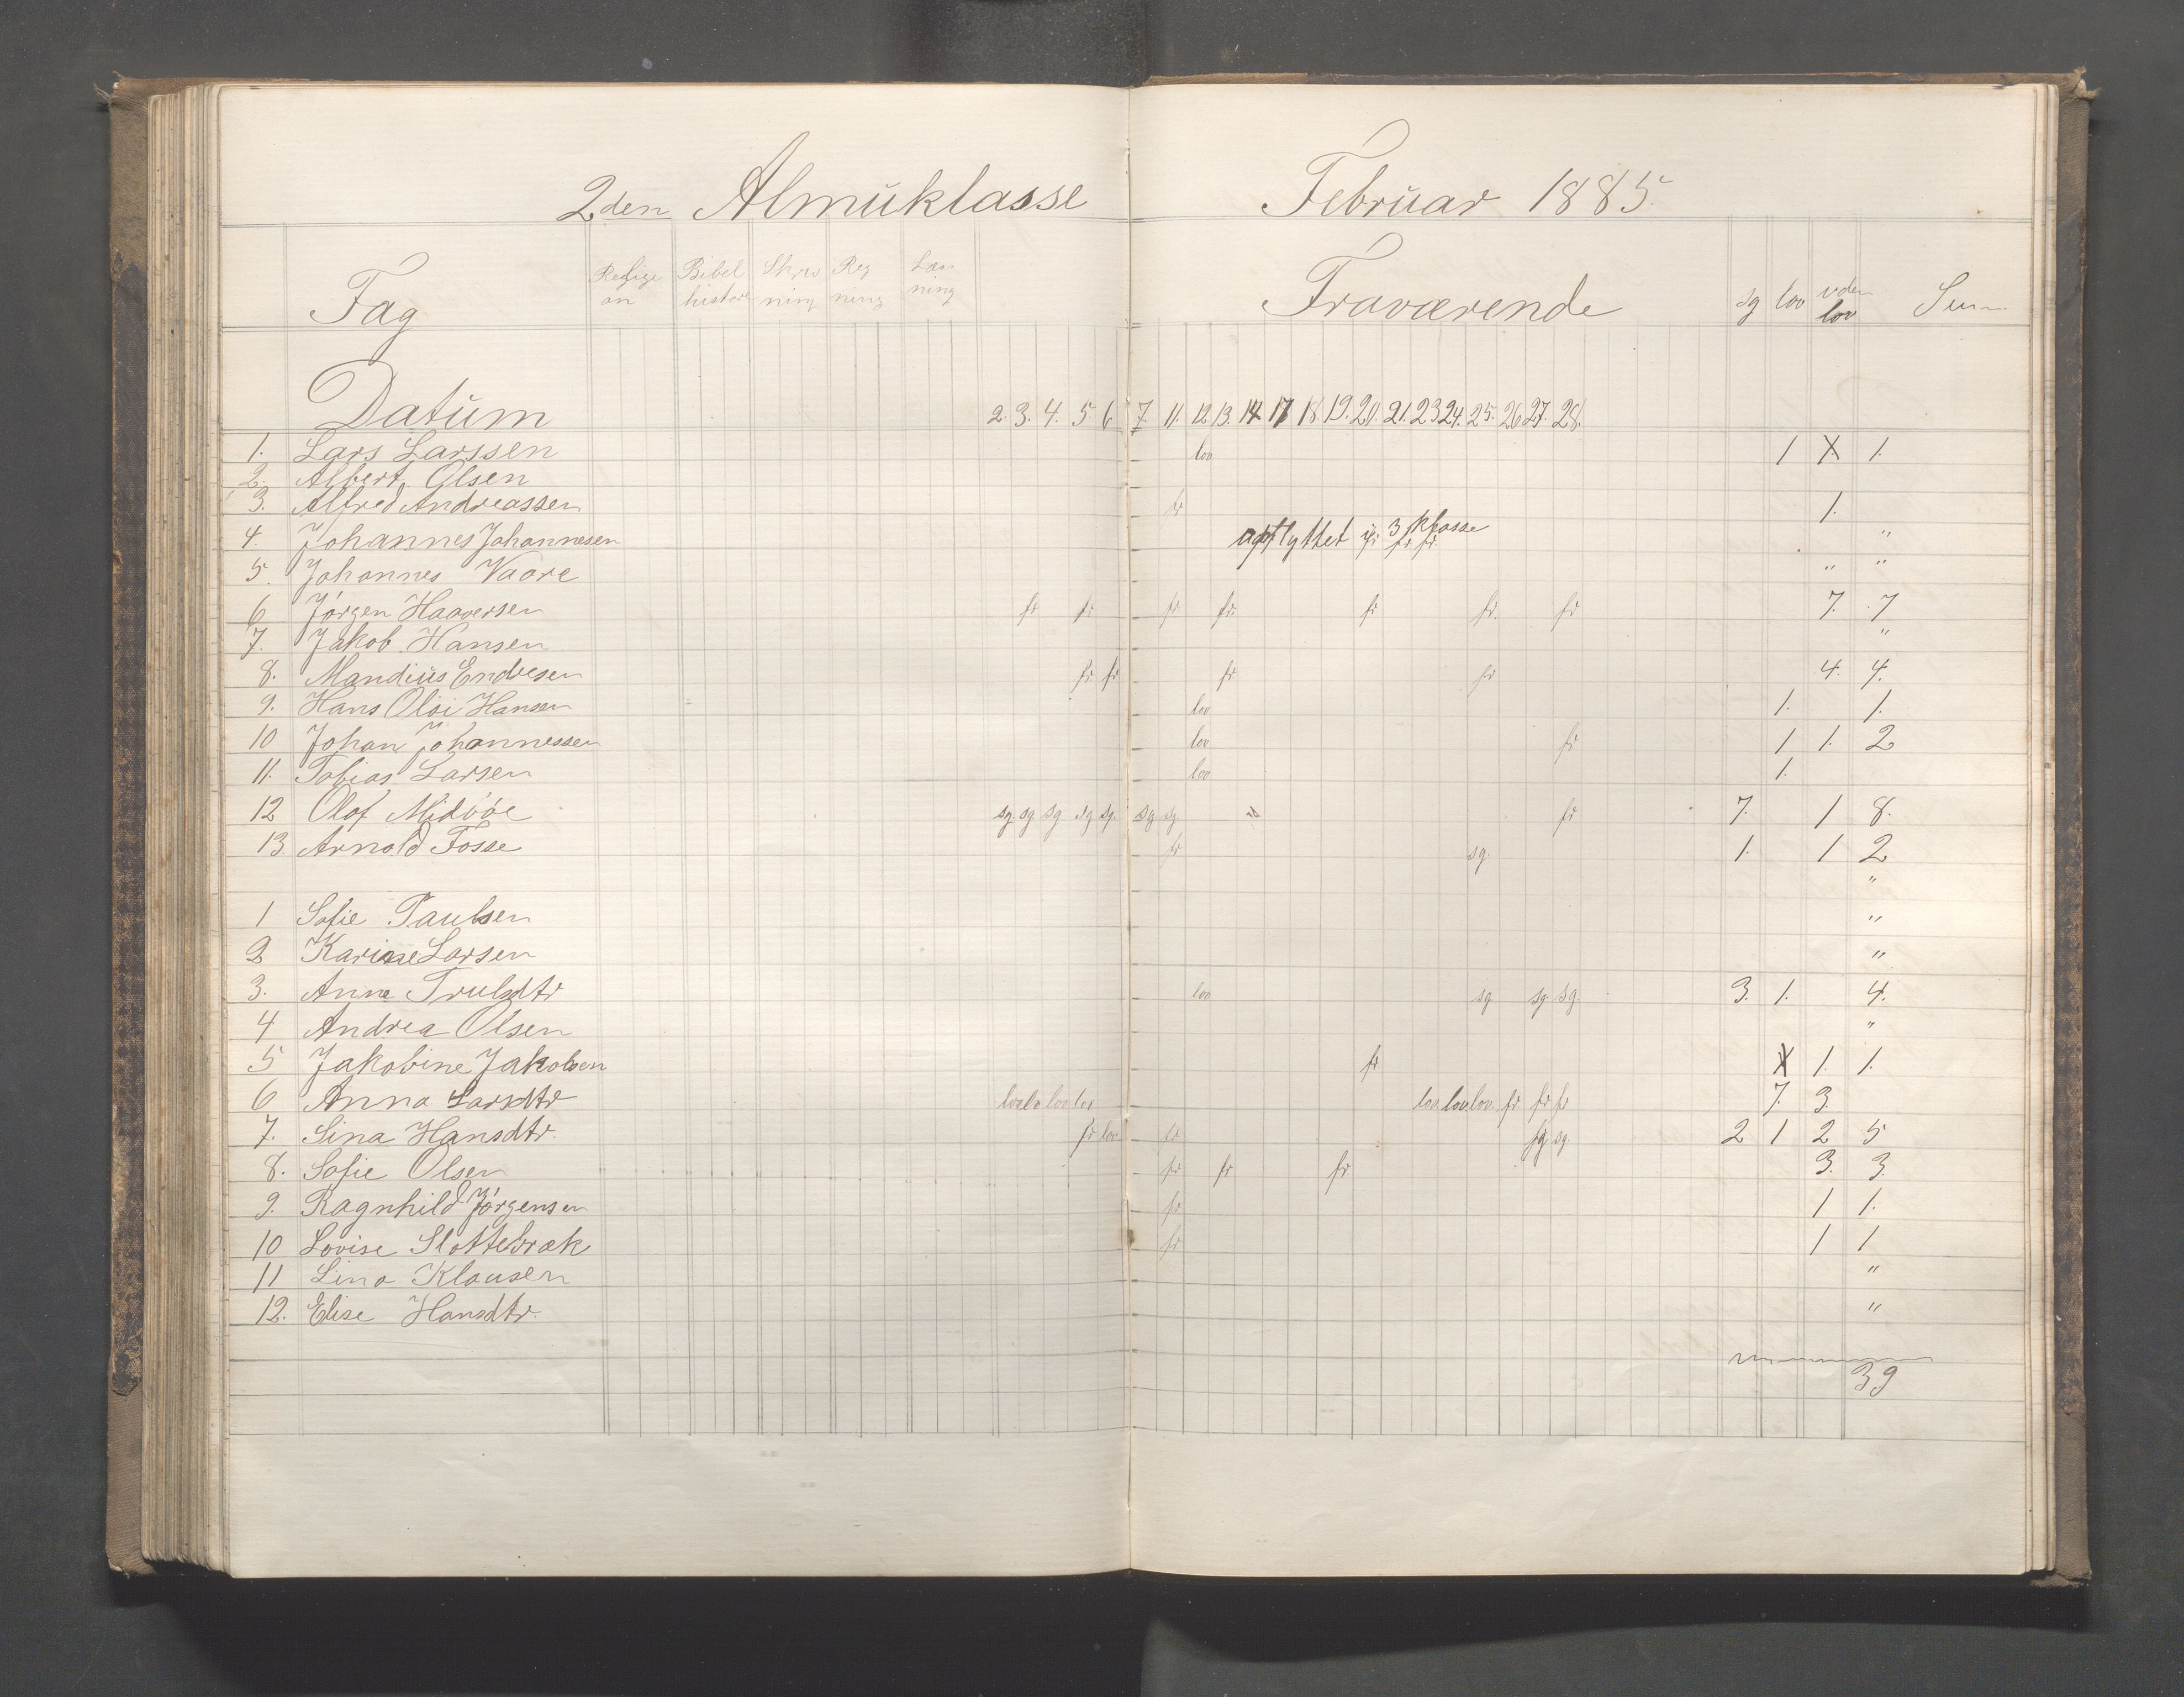 2den Almuklasse Februar 1885
Fag Religion Bibelhistorie Skrivning Regning Læsning Fraværende sg lov uden lov Sum
Datum 2. 3. 4. 5 6 7. 11. 12. 13. 14 17 18. 19. 20. 21. 23 24. 25. 26 27. 28.
1. Lars Larssen lov 1 1.
2. Albert Olsen
3. Alfred Andreassen fr 1.
4. Johannes Johannesen opflyttet i 3 klasse "
5. Johannes Vaare fr fr " "
6 Jörgen Haaversen fr fr fr fr. fr fr. fr 7. 7
7. Jakob Hansen "
8. Mandius Endresen fr fr fr fr 4. 4.
9. Hans Oloi Hansen lov 1. 1.
10 Johan Johannessen lov fr 1 1. 2
11. Tobias Larsen lov 1.
12 Olaf Midböe sg. sg sg. sg sg. sg sg fr 7. 1 8.
13. Arnold Fosse fr sg. 1. 1 2
"
1 Sofie Paulsen "
2 Karine Larsen "
3. Anna Trulsdtr lov sg sg. sg. 3. 1. 4.
4 Andrea Olsen "
5 Jakobine Jakobsen fr 1. 1.
6 Anna Larsdtr lov lov lov lov lov. lov lov. fr. fr fr 7. 3.
7. Sina Hansdtr. fr lov fr sg. sg. 2 1 2 5
8. Sofie Olsen fr fr fr. 3. 3.
9. Ragnhild Jörgensen fr 1 1.
10 Lovise Slottebræk fr 1 1
11 Lina Klausen "
12. Elise Hansdtr. "
39